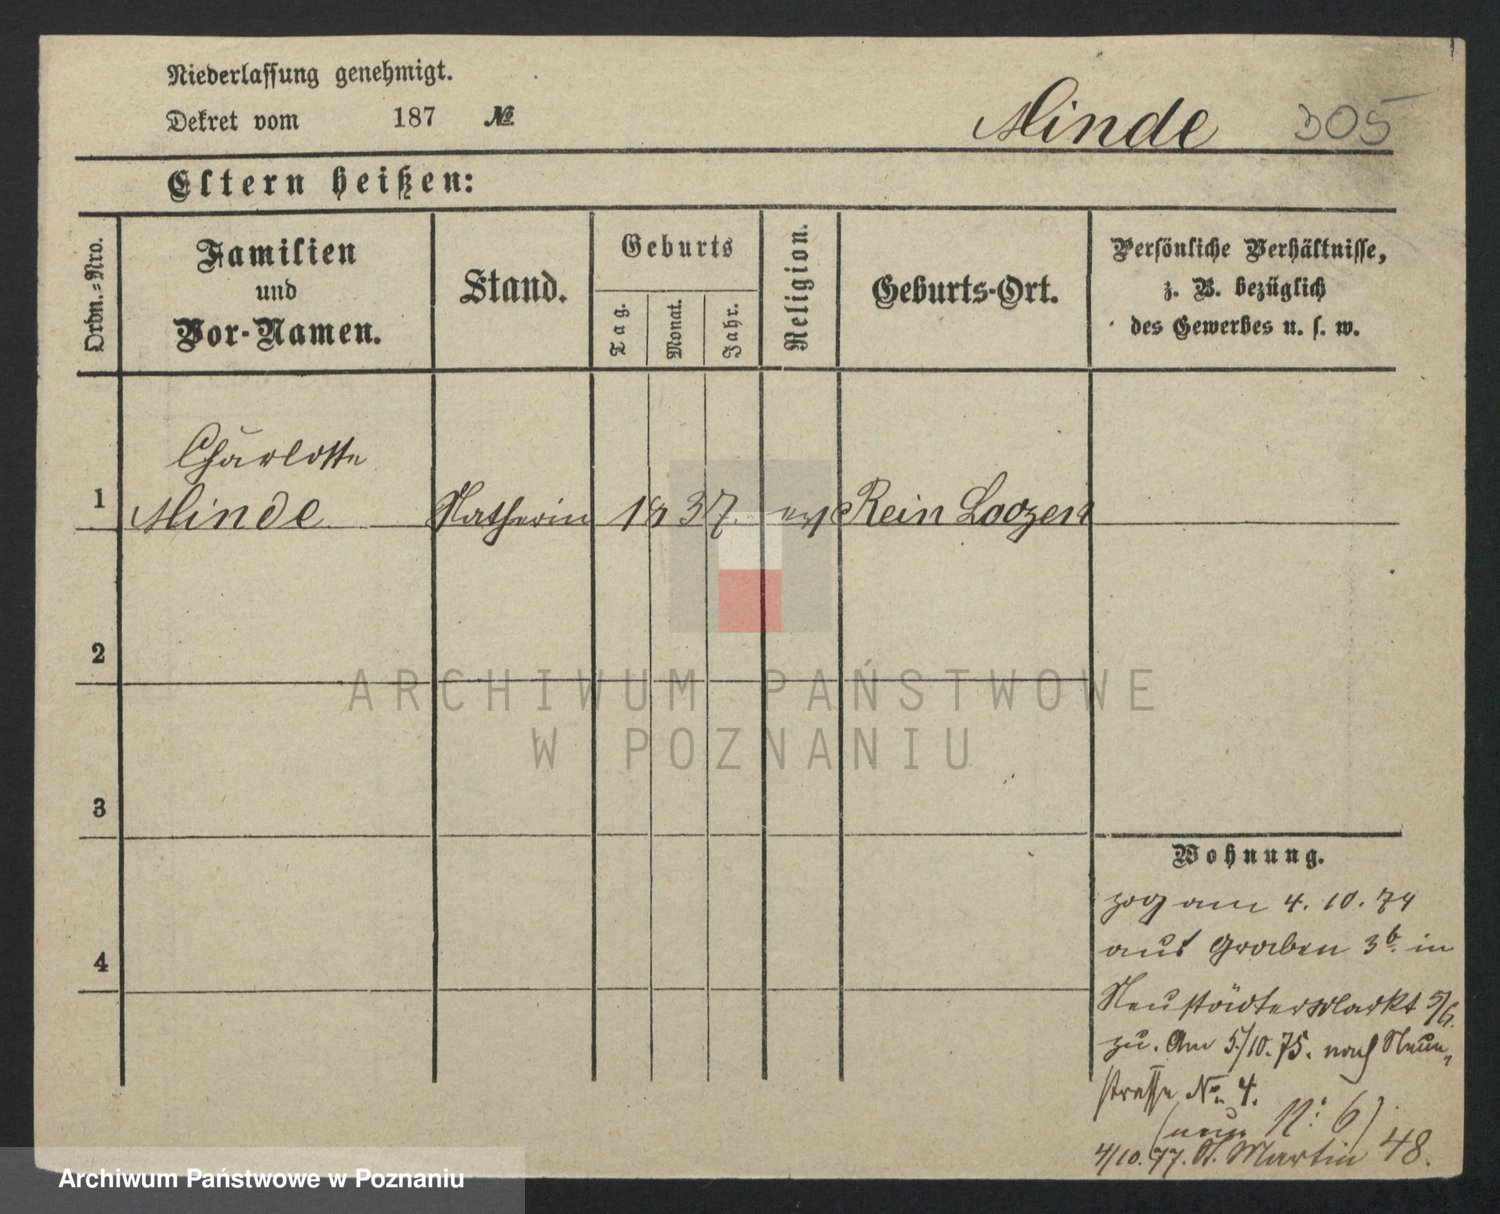 Niederlassung genehmigt.
Dekret vom 187 №
Minde 305
Eltern heißen:
Ordn.-Nro.
Familien
und
Vor-Namen.
Stand.
Geburts
Tag.
Monat.
Jahr.
Religion.
Geburts-Ort.
Persönliche Verhältnisse,
z. B. bezüglich
des Gewerbes u. s. w.
Charlotte
1 Minde 1837. ev Rein Loozen
2
3
4
ARCHIWUM PAŃSTWOWE
W POZNANIU
Wohnung.
zog am 4. 10. 74
aus Graben 3b. in
Neustädter Markt 5/6.
zu. Am 5/10. 75. nach Neue
strasse No. 4.
(neue N: 6)
4/10. 77. St. Martin 48.
Archiwum Państwowe w Poznaniu